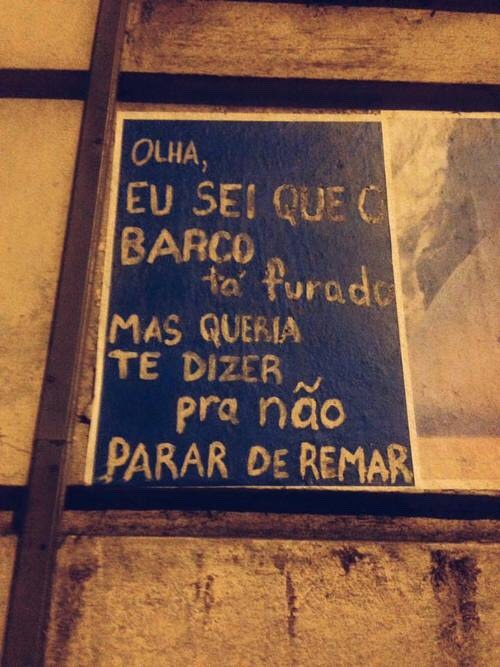 OLHA,
EU SEI QUE O
BARCO
tá furado
MAS QUERIA
TE DIZER
pra não
PARAR DE REMAR